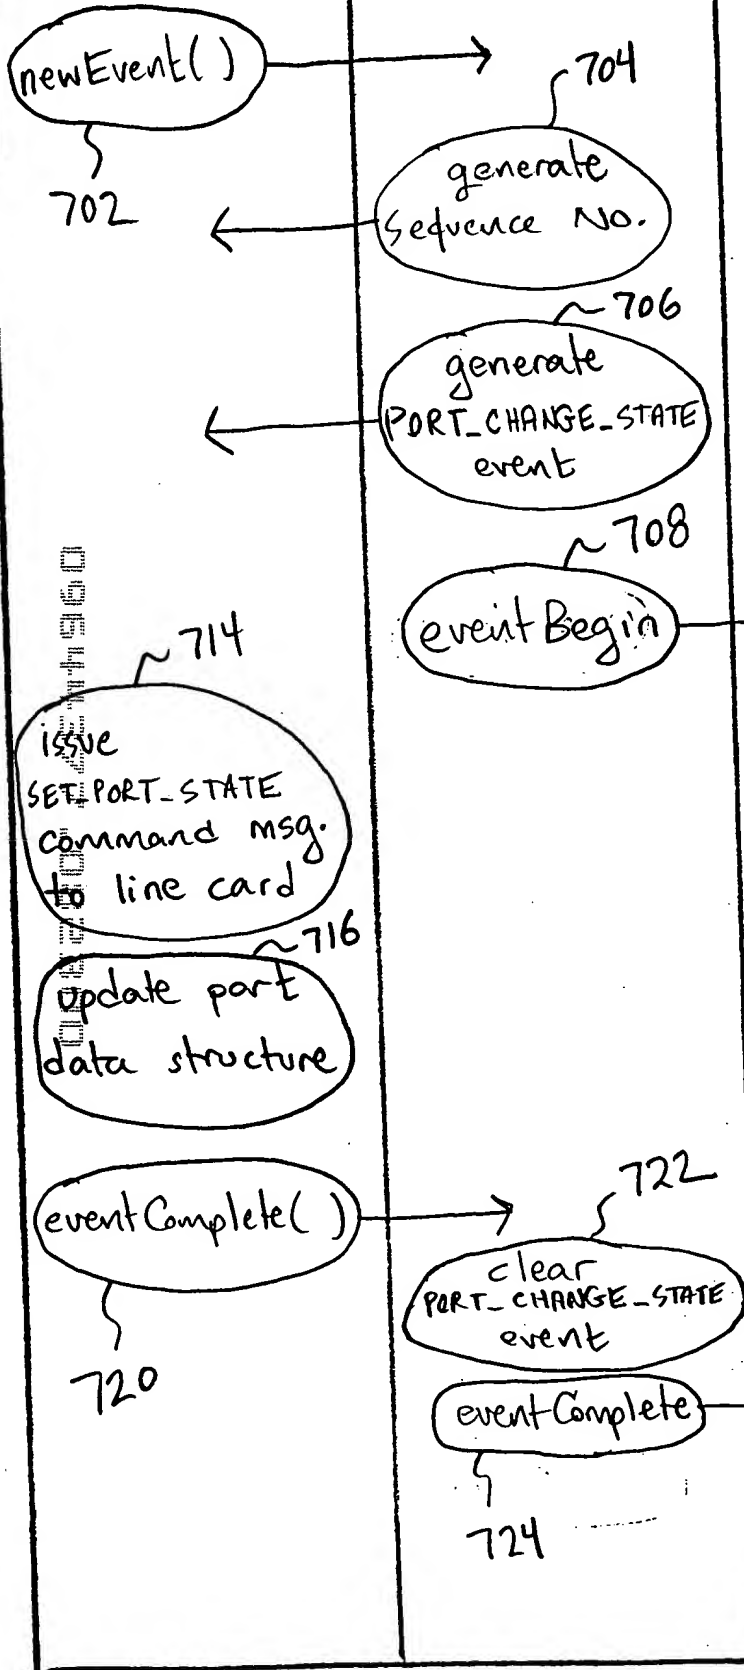 newEvent( )
702
704
generate
Sequence No.
706
generate
PORT_CHANGE_STATE
event
708
eventBegin
714
issue
SET_PORT_STATE
command msg.
to line card
716
update port
data structure
eventComplete( )
720
722
clear
PORT_CHANGE_STATE
event
eventComplete
724